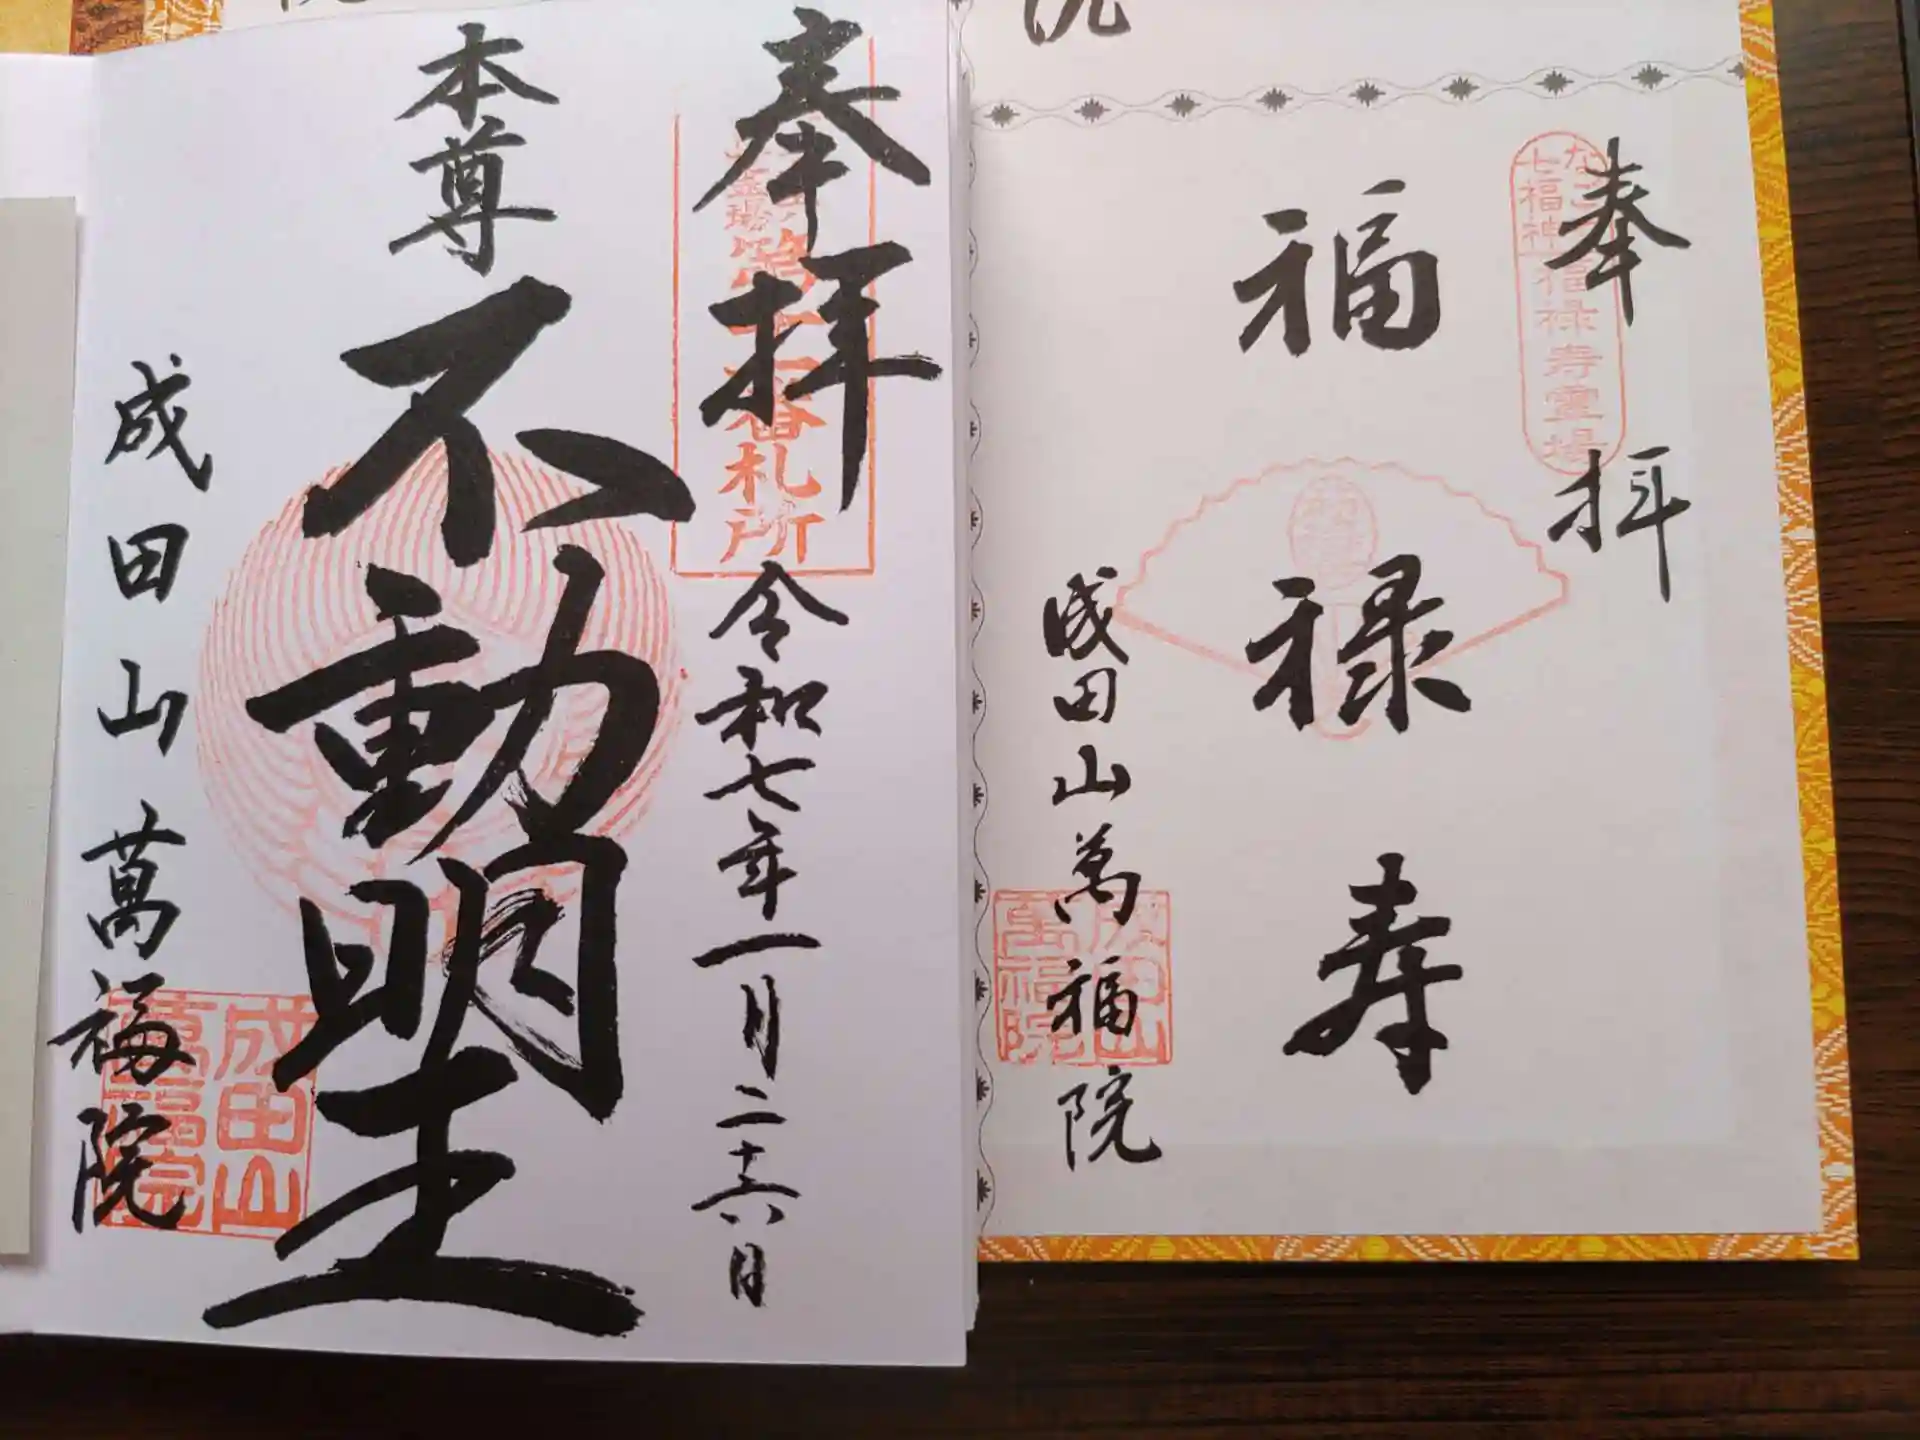 奉拝
福禄寿
成田山萬福院
七福神
福禄寿霊場
成田山
萬福院
奉拝
番札所
令和七年一月二十六日
本尊
不動明王
成田山萬福院
成田山
萬福院
院